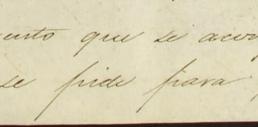 ento que se acog
se pide para